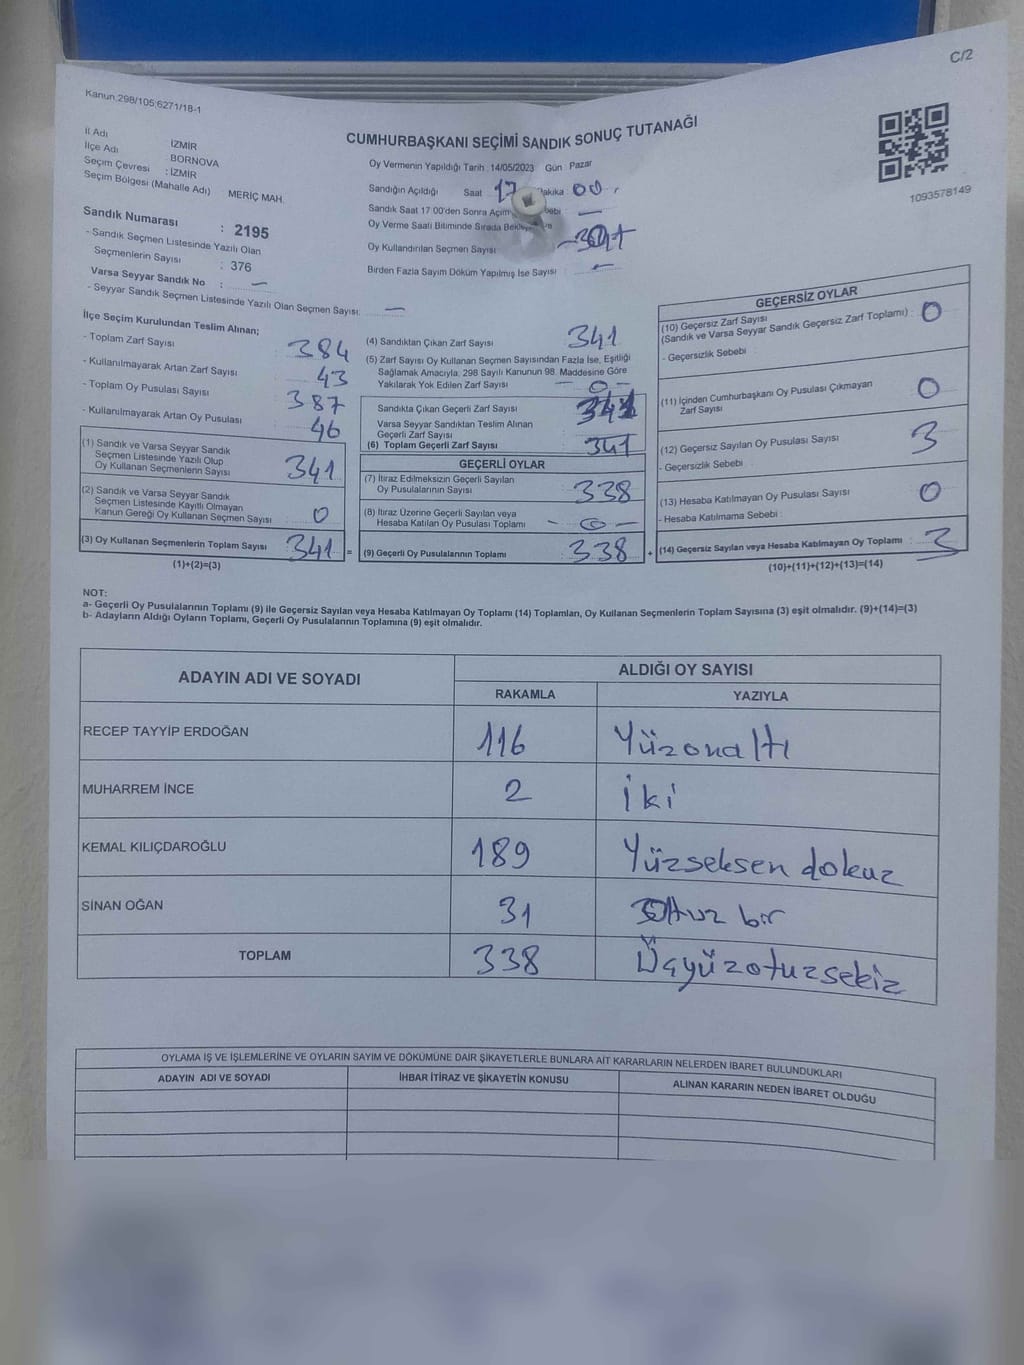 C/2
Kanun.298/105;6271/18-1
CUMHURBAŞKANI SEÇİMİ SANDIK SONUÇ TUTANAĞI
İl Adı İZMİR
İlçe Adı BORNOVA
Seçim Çevresi : İZMİR
Seçim Bölgesi (Mahalle Adı) MERİÇ MAH.
Oy Vermenin Yapıldığı Tarih :14/05/2023 Gün : Pazar
Sandığın Açıldığı Saat 17 Dakika 00
Sandık Saat 17 00'den Sonra Açım
Oy Verme Saati Bitiminde Sırada
Oy Kullandırılan Seçmen Sayısı
Birden Fazla Sayım Döküm Yapılmış İse Sayısı : —
1093578149
Sandık Numarası : 2195
- Sandık Seçmen Listesinde Yazılı Olan
Seçmenlerin Sayısı : 376
Varsa Seyyar Sandık No : —
- Seyyar Sandık Seçmen Listesinde Yazılı Olan Seçmen Sayısı: —
İlçe Seçim Kurulundan Teslim Alınan;
- Toplam Zarf Sayısı 384
- Kullanılmayarak Artan Zarf Sayısı 43
- Toplam Oy Pusulası Sayısı 387
- Kullanılmayarak Artan Oy Pusulası 46
(1) Sandık ve Varsa Seyyar Sandık
Seçmen Listesinde Yazılı Olup
Oy Kullanan Seçmenlerin Sayısı 341
(2) Sandık ve Varsa Seyyar Sandık
Seçmen Listesinde Kayıtlı Olmayan
Kanun Gereği Oy Kullanan Seçmen Sayısı 0
(3) Oy Kullanan Seçmenlerin Toplam Sayısı 341 =
(1)+(2)=(3)
(4) Sandıktan Çıkan Zarf Sayısı 341
(5) Zarf Sayısı Oy Kullanan Seçmen Sayısından Fazla İse, Eşitliği
Sağlamak Amacıyla, 298 Sayılı Kanunun 98. Maddesine Göre
Yakılarak Yok Edilen Zarf Sayısı — 0 —
Sandıkta Çıkan Geçerli Zarf Sayısı 341
Varsa Seyyar Sandıktan Teslim Alınan
Geçerli Zarf Sayısı
(6) Toplam Geçerli Zarf Sayısı 341
GEÇERLİ OYLAR
(7) İtiraz Edilmeksizin Geçerli Sayılan
Oy Pusulalarının Sayısı 338
(8) İtiraz Üzerine Geçerli Sayılan veya
Hesaba Katılan Oy Pusulası Toplamı — 0 —
(9) Geçerli Oy Pusulalarının Toplamı 338 +
GEÇERSİZ OYLAR
(10) Geçersiz Zarf Sayısı
(Sandık ve Varsa Seyyar Sandık Geçersiz Zarf Toplamı) : 0
- Geçersizlik Sebebi :
(11) İçinden Cumhurbaşkanı Oy Pusulası Çıkmayan
Zarf Sayısı 0
(12) Geçersiz Sayılan Oy Pusulası Sayısı 3
- Geçersizlik Sebebi :
(13) Hesaba Katılmayan Oy Pusulası Sayısı 0
- Hesaba Katılmama Sebebi :
(14) Geçersiz Sayılan veya Hesaba Katılmayan Oy Toplamı : 3
(10)+(11)+(12)+(13)=(14)
NOT:
a- Geçerli Oy Pusulalarının Toplamı (9) ile Geçersiz Sayılan veya Hesaba Katılmayan Oy Toplamı (14) Toplamları, Oy Kullanan Seçmenlerin Toplam Sayısına (3) eşit olmalıdır. (9)+(14)=(3)
b- Adayların Aldığı Oyların Toplamı, Geçerli Oy Pusulalarının Toplamına (9) eşit olmalıdır.
ADAYIN ADI VE SOYADI ALDIĞI OY SAYISI
RAKAMLA YAZIYLA
RECEP TAYYİP ERDOĞAN 116 Yüzonaltı
MUHARREM İNCE 2 İki
KEMAL KILIÇDAROĞLU 189 Yüzseksen dokuz
SİNAN OĞAN 31 Otuz bir
TOPLAM 338 Üçyüzotuzsekiz
OYLAMA İŞ VE İŞLEMLERİNE VE OYLARIN SAYIM VE DÖKÜMÜNE DAİR ŞİKAYETLERLE BUNLARA AİT KARARLARIN NELERDEN İBARET BULUNDUKLARI
ADAYIN ADI VE SOYADI İHBAR İTİRAZ VE ŞİKAYETİN KONUSU ALINAN KARARIN NEDEN İBARET OLDUĞU